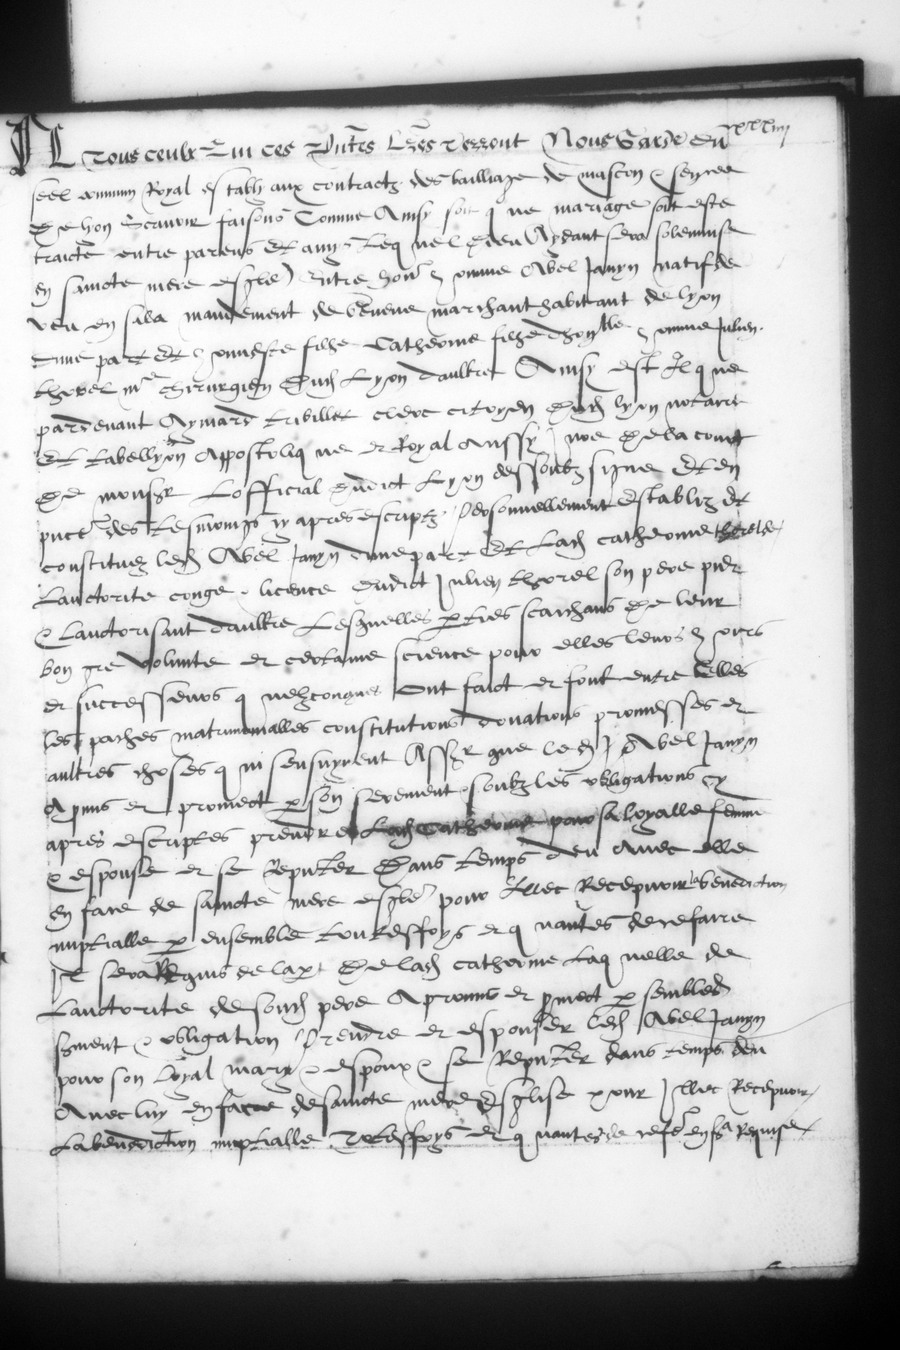 A tous ceulx qui ces pntes lres verront Nous Garde du xxxiiii
seel commun Royal establi aux contractz des bailliage de mascon & senjcee
De lyon Scavoir faisons Comme Ainsy soit q ue mariage soit este
traicte entre parens Et amys Leq uel dieu Aydant sera solempnise
en saincte mere esglie Entre hon homme Abel Janyn natif de
en marchant habitant de lyon
dune part Et honneste fille Catherine fille dhon homme Julien
thorel me chirurgien dud Lyon daultre Ainsy est Il q ue
pardevant Aymard Ribillet clerc citoyen dud lyon notaire
Et tabellyon Appostoliq ue et Royal Aussy Jure De la court
De monsgr Lofficial dudict Lyon dessoubz signe Et en
pnce des tesmoings cy apres escriptz Personnellement Establiz Et
constituez led Abel Janyn dune part Et Lad catherine thorelde
Lauctorite conge & licence dudict Julien thorel son pere pnt
& Lauctorisant daultre Lesquelles parties scaichans De leur
bon gre volunte et certaine science pour elles leurs hoirs
et successeurs q uelzconques Ont faict et font entre Elles
les paches matrimonialles constitutions donations promesses et
aultres choses q ui sensuyvent Assr que led Abel Janyn
A promis et promect p son serement soubz les obligations cy
apres escriptes prendre Lad Catherine pour sa loyalle femme
& espouse et se Reputer Dans temps deu Avec elle
en face de saincte mere esglie pour Illec Recepvoir la benediction
nuptialle p ensemble toutesffoys et q uantes de ce faire
Il sera Requis de la pt De lad catherine Laq uelle de
Lauctorite de sond pere A promis et pmect p semblable
serment & obligation Prendre et espouser led Abel Janyn
pour son Loyal mary & espoux & se Reputer dans temps deu
Avec luy en facce de saincte mere Esglise pour Illec Recepvoir
La benediction nuptialle Totesffoys et q uantes de ce fe en sa Requise